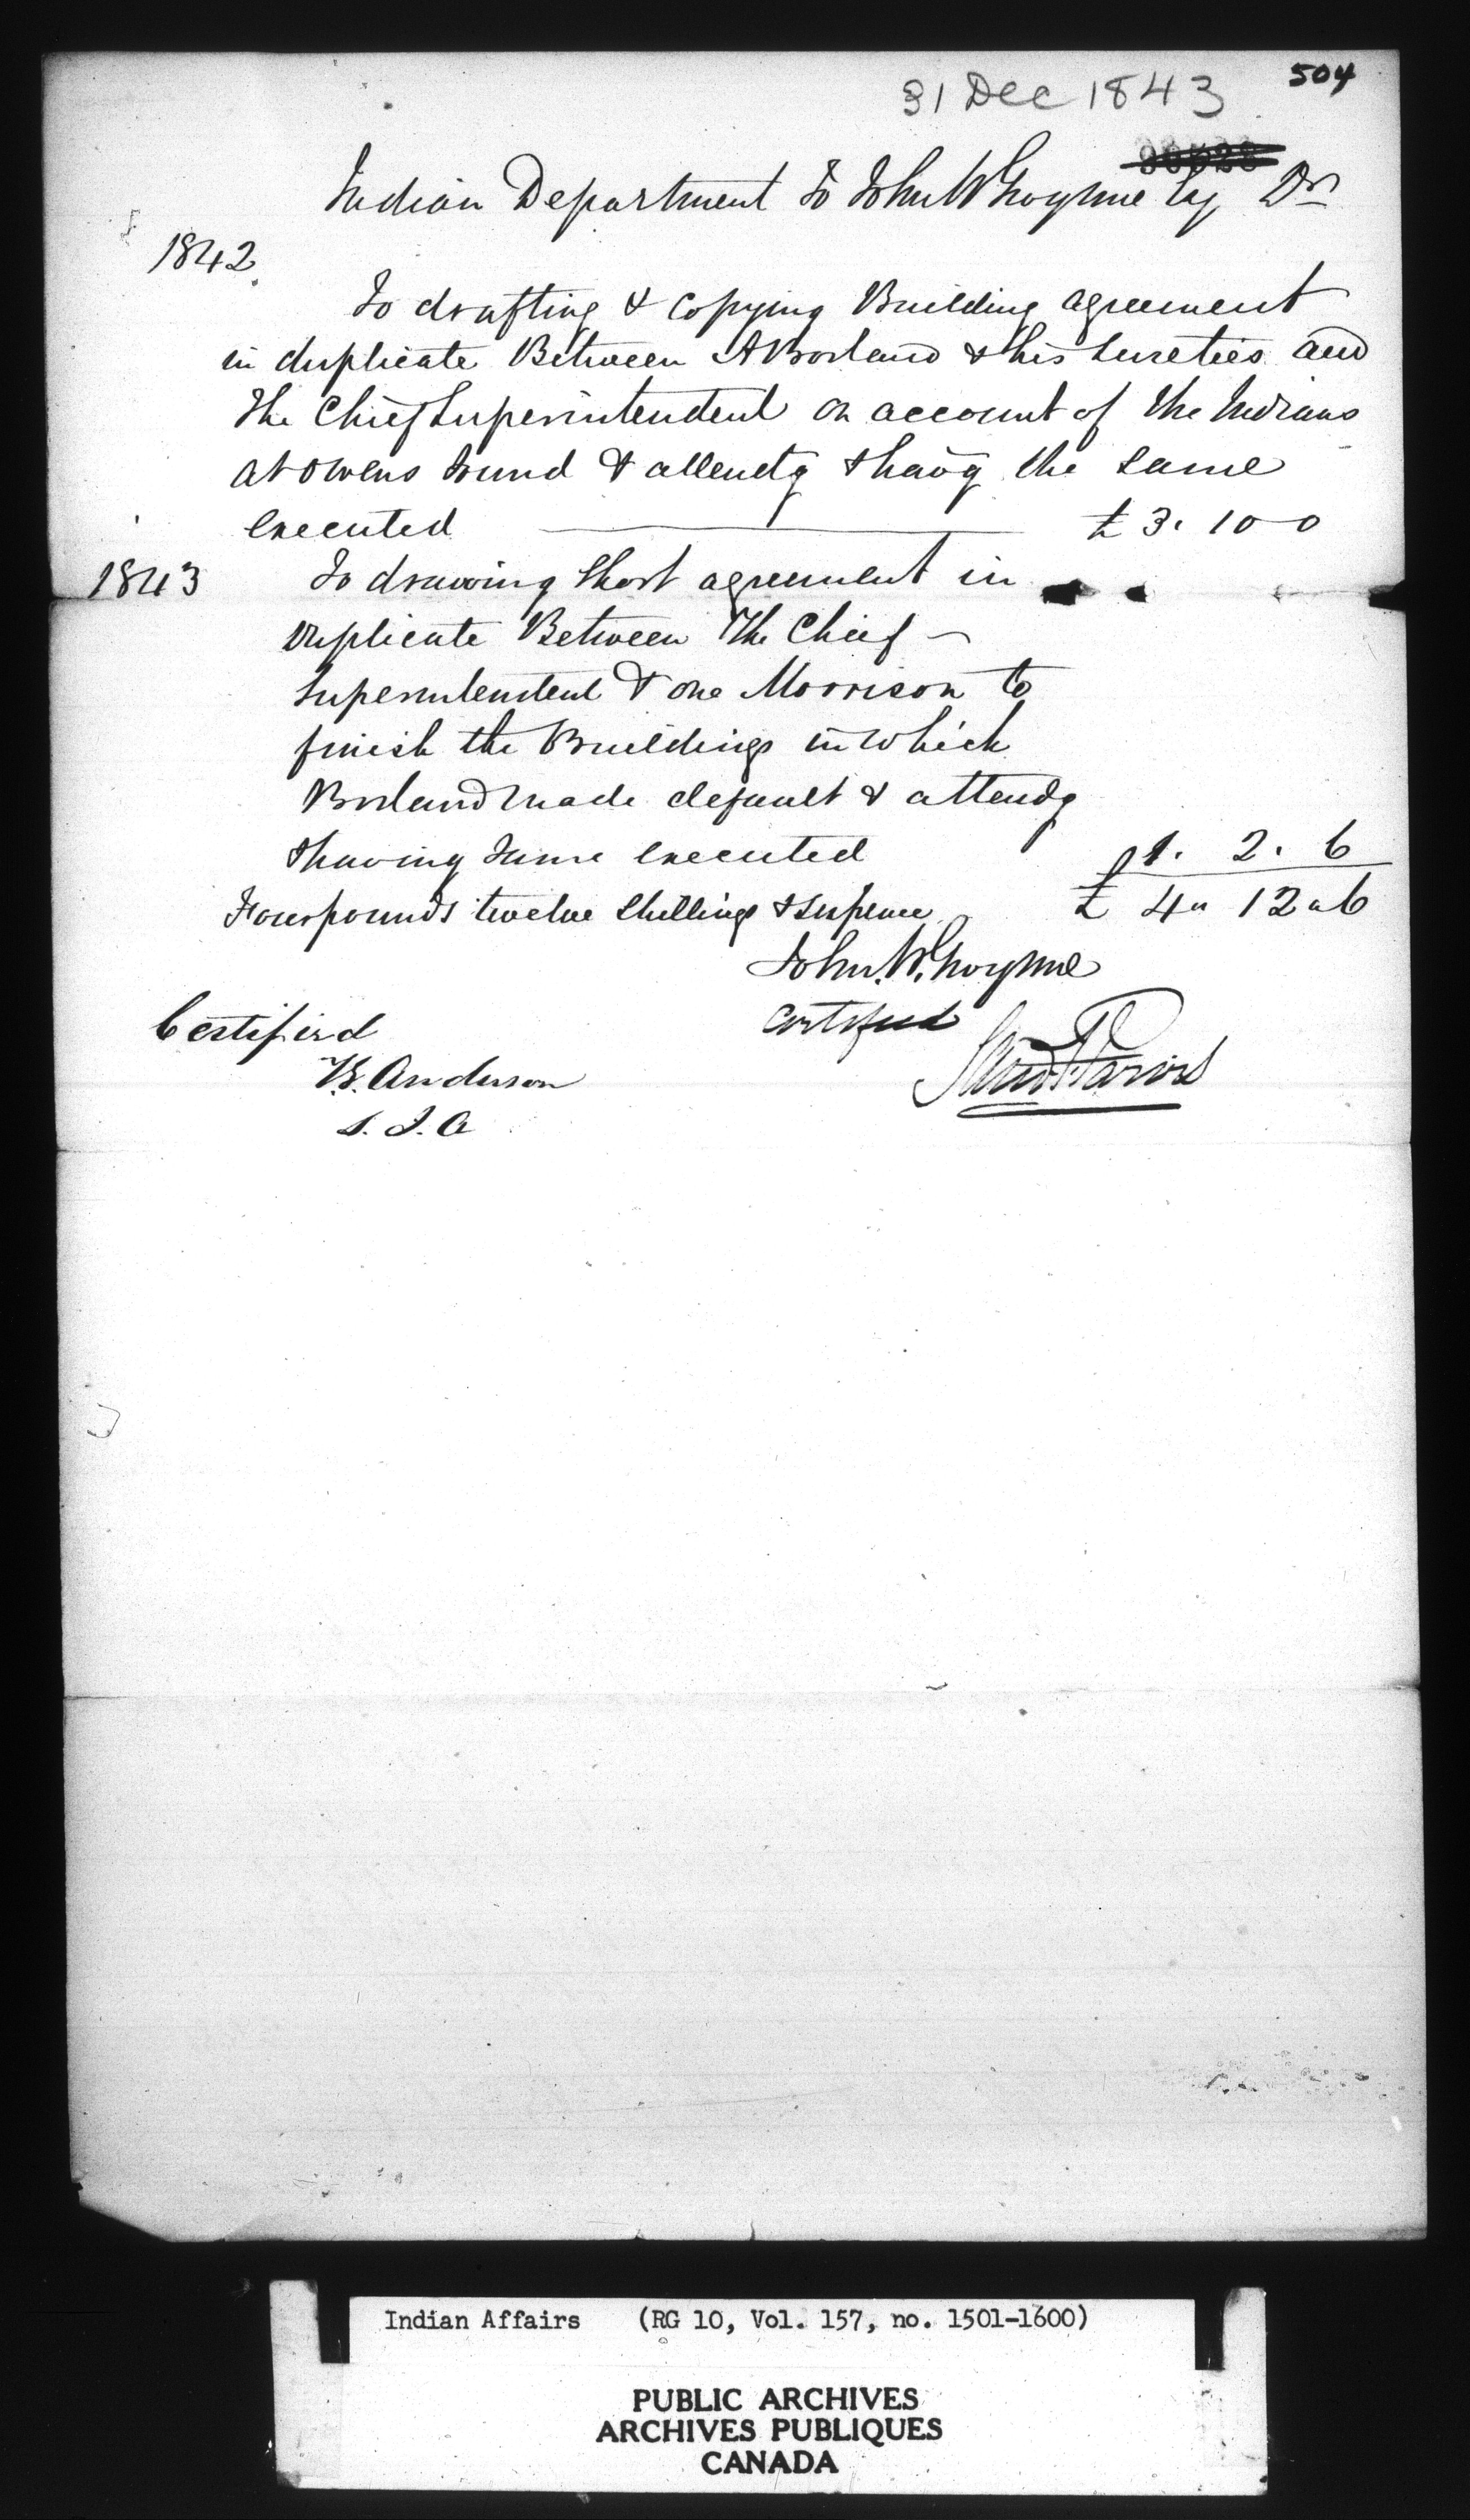 504
31 Dec 1843
Indian Department To John W Gwynne Esq Dr
1842
To drafting & Copying Building agreement
in duplicate Between A Borland & his sureties and
the Chief Superintendent on account of the Indians
at Owens Sound & attendg & havg the same
executed £3. 10-0
1843 To drawing Short agreement in
Duplicate Between The Chief
Superintendent & one Morrison to
finish the Buildings in which
Borland made default & attendg
& having same executed 1. 2. 6
Four pounds twelve shillings & sixpence £ 4" 12"6
John. W. Gwynne
Certified
Certified
T.G. Anderson
S. I. A
Saml P Jarvis
Indian Affairs (RG 10, Vol. 157, no. 1501-1600)
PUBLIC ARCHIVES
ARCHIVES PUBLIQUES
CANADA